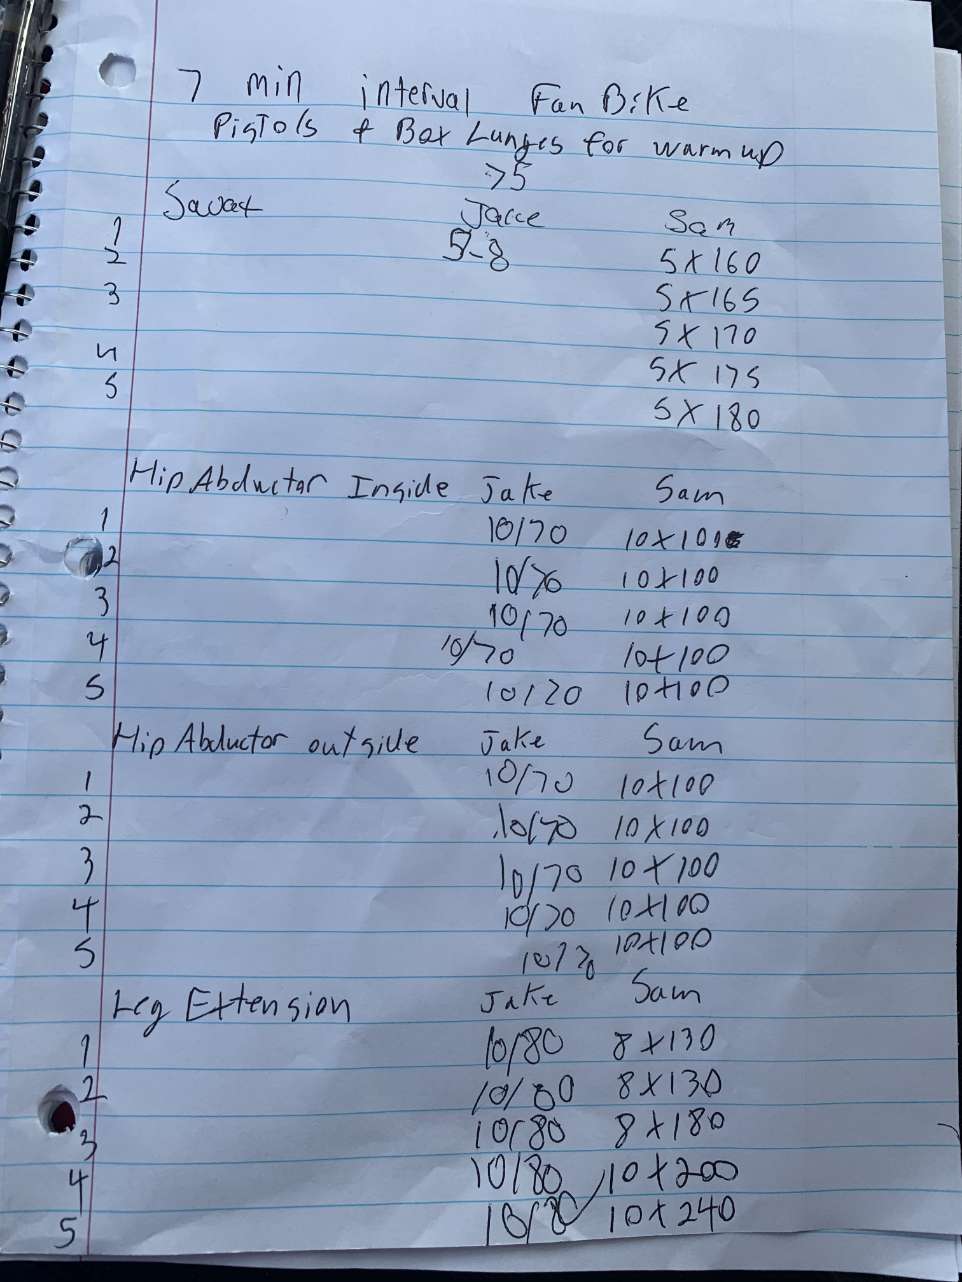 7 min interval Fan Bike
Pistols & Box Lunges for warm up
>5
Jake Sam
1
2 5-8 5x160
3 5x165
5x170
4 5x175
5
5x180
Hip Abductor Inside Jake Sam
1 10/70 10x100
2 10/70 10x100
3 10/70 10x100
4 10/70 10x100
5 10/70 10x100
Hip Abductor outside Jake Sam
1 10/70 10x100
2 10/70 10x100
3 10/70 10x100
4 10/70 10x100
5 10/70 10x100
Leg Extension Jake Sam
1 10/80 8x130
2 10/80 8x130
3 10/80 8x180
4 10/80 10x200
5 10/80 10x240